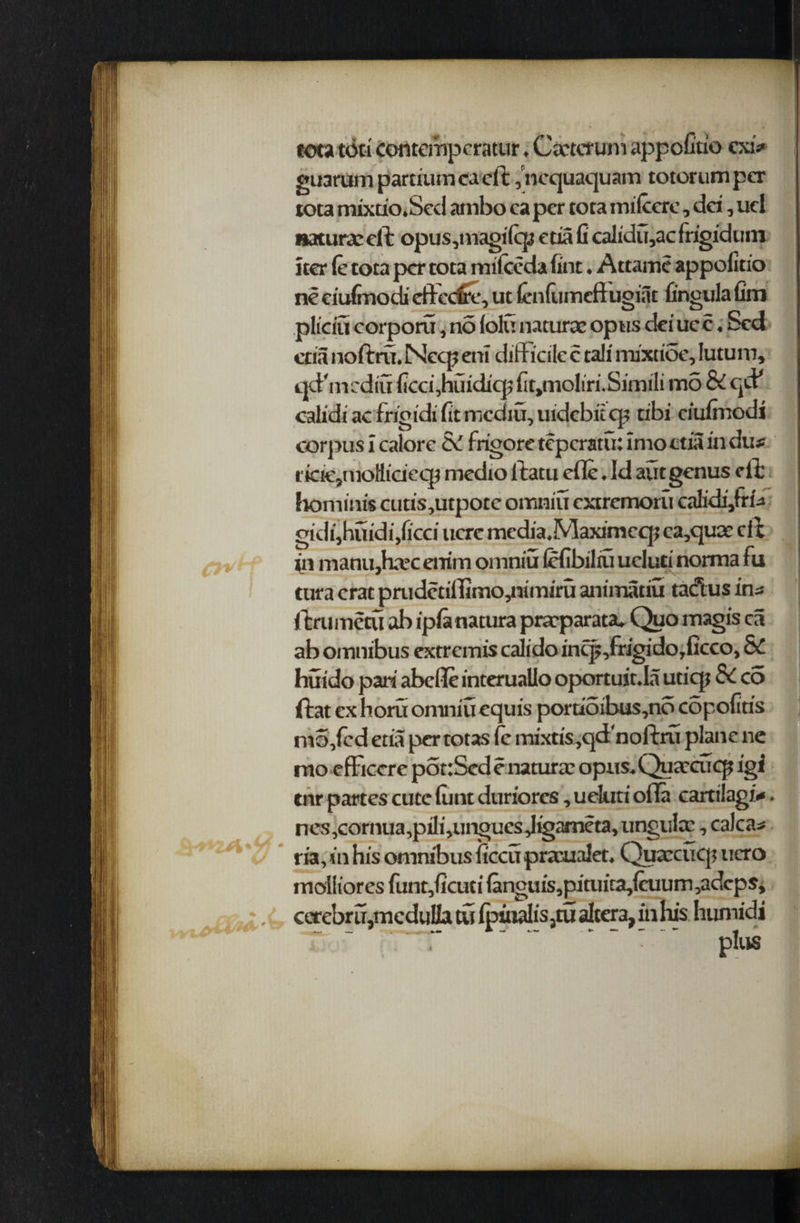 tota tóti contemperatur. Cæterum appoſitio exi⸗
guarum partium ea eſt, nequaquam totorum per
tota mixtio. Sed ambo ea per tota miſcere, dei, uel
naturæ eſt opus, magiſq; etiã ſi calidũ, ac frigidum
iter ſe tota per tota miſcẽda ſint. Attamẽ appoſitio
nẽ eiuſmodi effecere, ut ſenſum effugiãt ſingula ſim
pliciũ corporũ, nõ ſolũ naturæ opus dei ue ẽ. Sed
etiã noſtrũ. Necq; enĩ difficile ẽ tali mixtiõe, lutum,
qđ mediũ ſicci, hũidiq; ſit, moliri. Simili mõ & qđ
calidi ac frigidi ſit mediũ, uidebit̃ q; tibi eiuſmodi
corpus ĩ calore & frigore tẽperatũ: imo etiã in du⸗
ricie, molliciecq; medio ſtatu eſſe. Id aũt genus eſt
hominis cutis, utpote omniũ extremorũ calidi, fri⸗
gidi, hũidi, ſicci uere media. Maximecq; ea, quæ eſt
in manu, hæc enim omniũ ſẽſibiliũ ueluti norma fu
tura erat prudẽtiſſimo, nimirũ animãtiũ tactus in⸗
ſtrumẽtũ ab ipſa natura præparata. Quo magis eã
ab omnibus extremis calido incq;, frigido, ſicco, &
hũido pari abeſſe interuallo oportuit. Iã uticq; & cõ
ſtat ex horũ omniũ equis portiõibus, nõ cõpoſitis
mõ, ſed etiã per totas ſe mixtis, qđ noſtrũ plane ne
mo efficere põt: Sed ẽ naturæ opus. Quæcũcq; igi
tnr partes cute ſunt duriores, ueluti oſſa cartilagi⸗
nes, cornua, pili, ungues, ligamẽta, ungulæ, calca⸗
ria, in his omnibus ſiccũ præualet. Quæcũcq; uero
molliores ſunt, ſicuti ſanguis, pituita, ſeuum, adeps,
cerebrũ, medulla tũ ſpinalis, tũ altera, in his humidi
plus